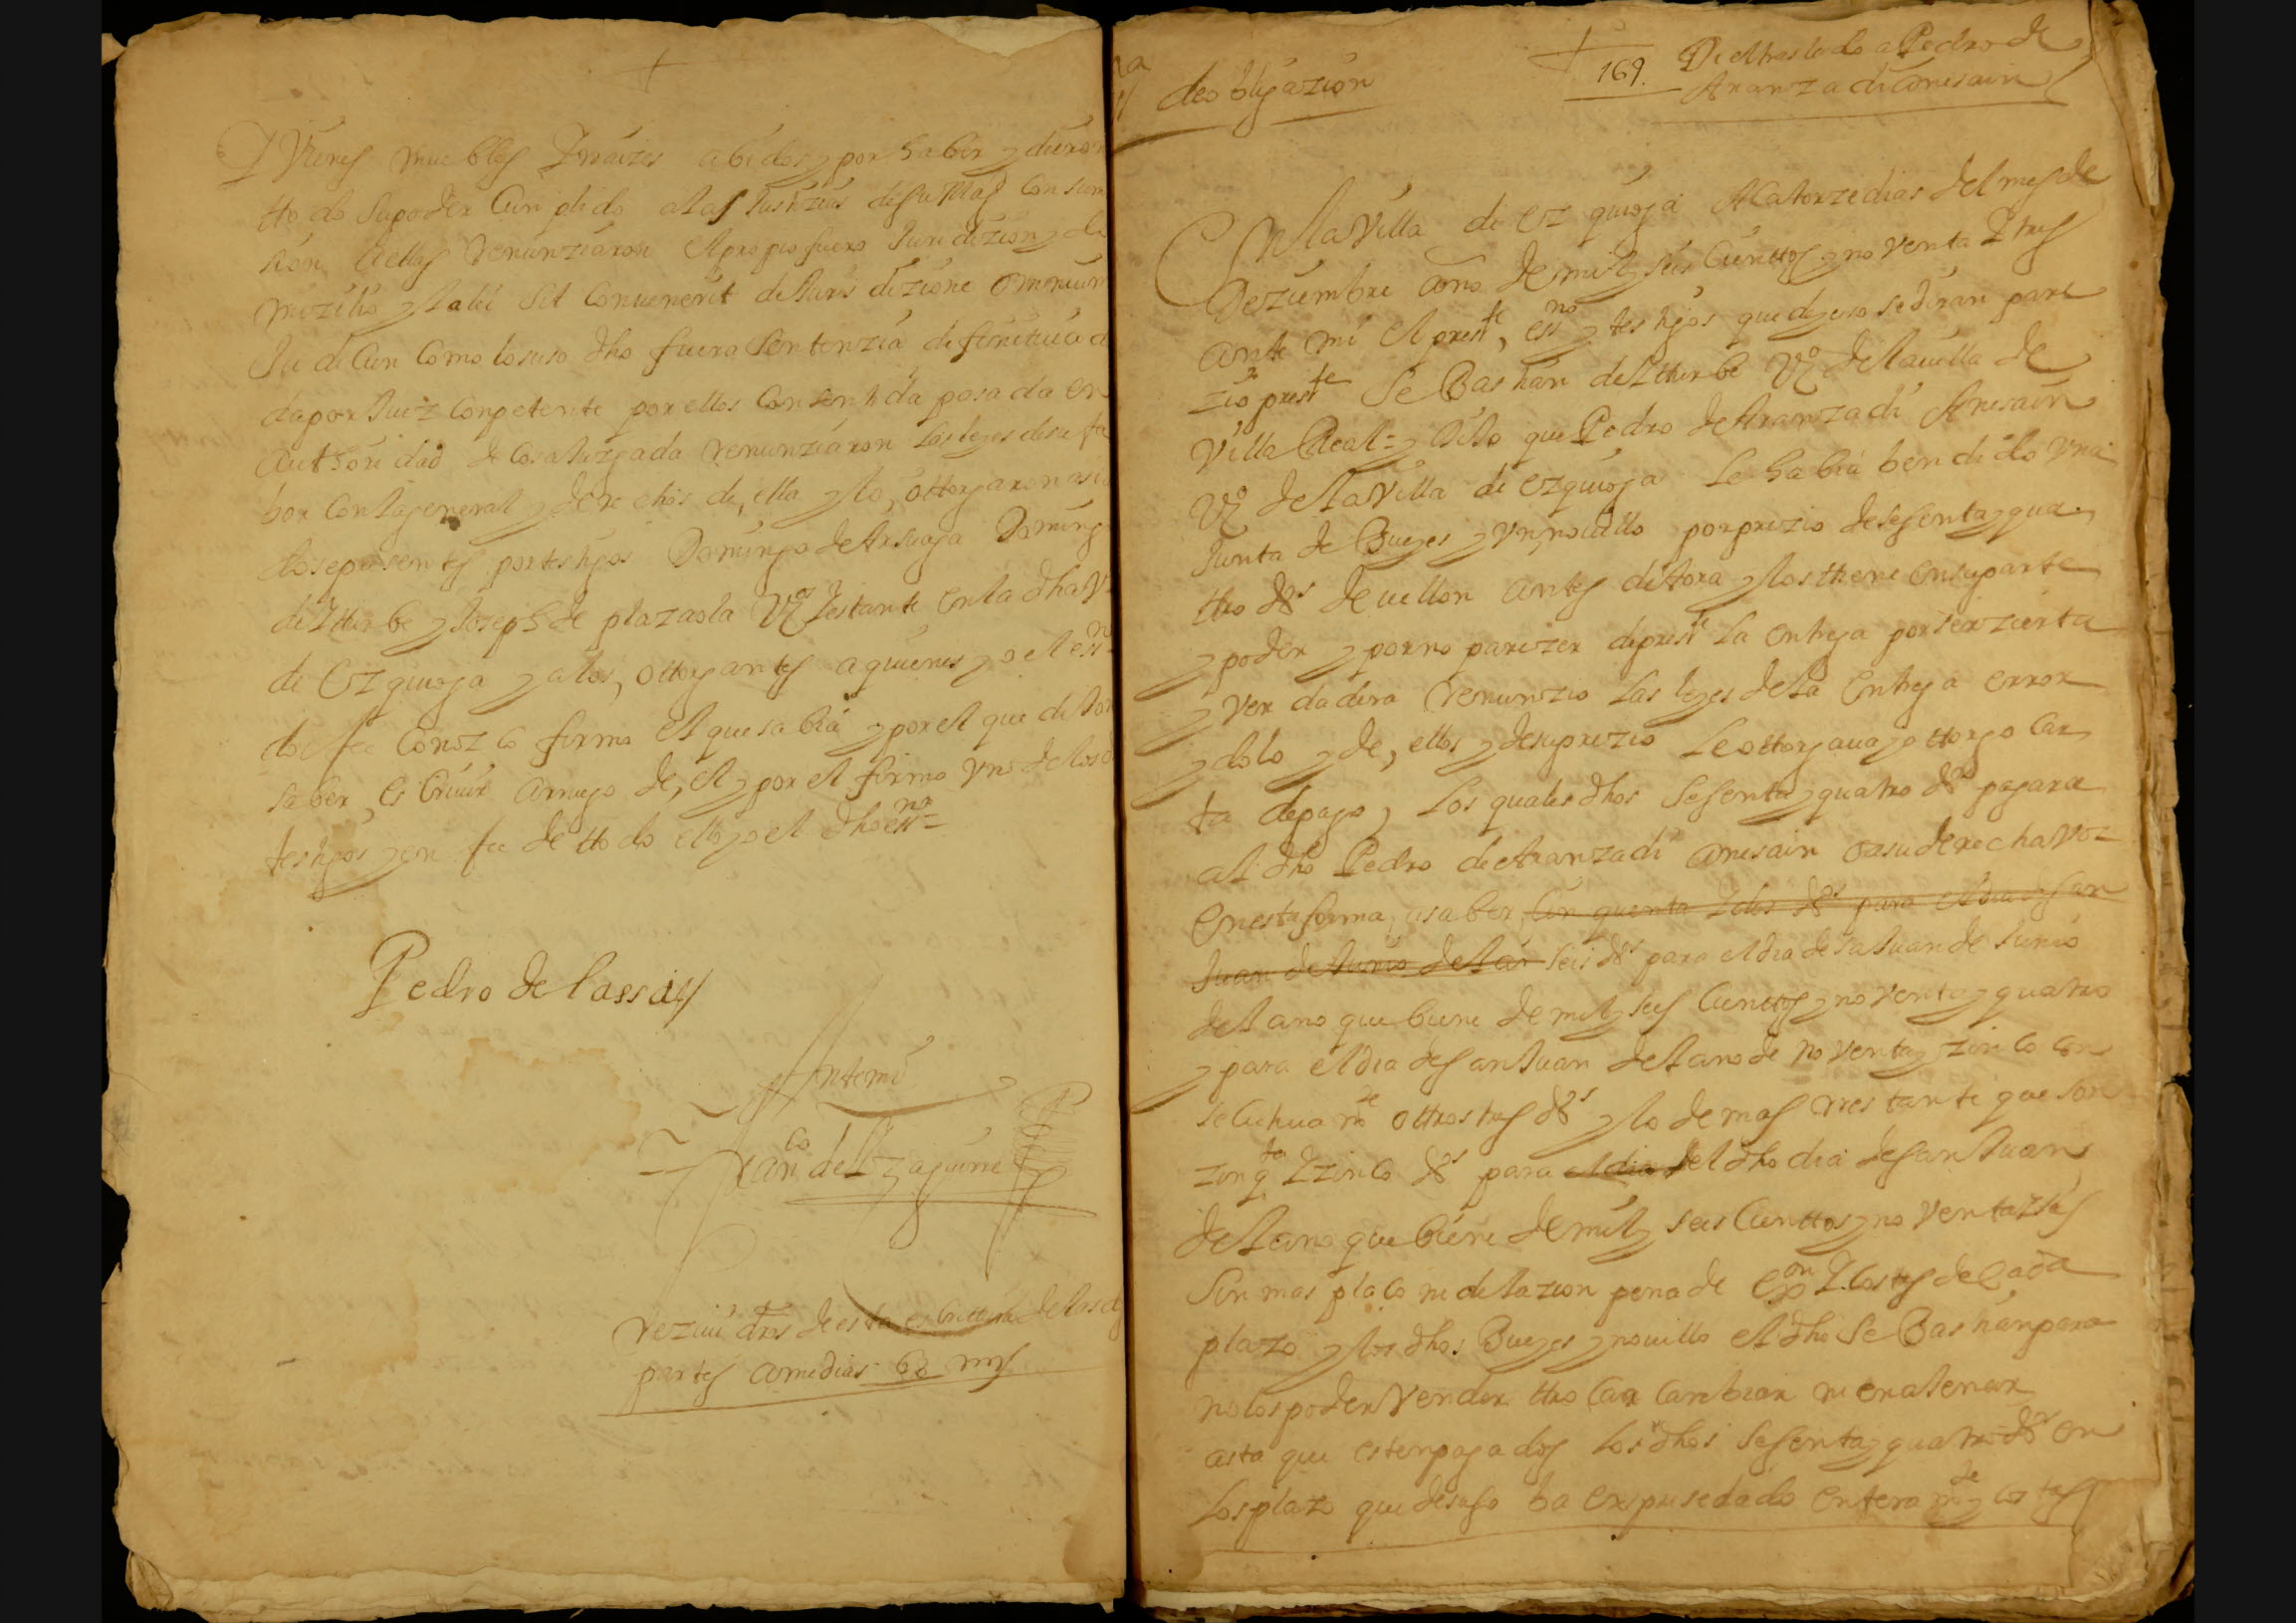 Y Vienes muebles Y rraizes abidos y por haber y dieron
tto do su poder Cunplido a las Justizias de su Mag Con sumi
sion a ellas Renunziaron el propio fuero Jurisdizion y do
mizilio y la lei sit convenerit de Jurisdizione omnium
Judicun Como lo suso dho fuera Sentenzia difinitiua d
da por Juez Conpetente por ellos Consentida pasada en
authoridad de Cosa Juzgada renunziaron las leyes de su fa
bor con la general y derechos de ella y lo ottorgaron asi
do se presentes por testigos Domingo de Arsuaga Doming
de Itturbe y Joseph de plazaola Vos Y estante en la dha V
de Ezquioga y a los ottorgantes a quienes yo el essno
doi fee Conozco firmo el que sabia y por el que dijo no
saber escriuir a rruego de el y por el firmo vno de los d
testigos y en fee de tto do ello yo el dho essno=
Pedro de lassa
Ante mi
Franco de Yzaguirre
Reziui dros de esta escrittura de las dos
partes a medias 68 mrs
de obligazion
169.
Di el traslado a Pedro de
Aranzadi Anisain
En la Villa de Ezquioga A Catorze dias del mes de
Deziembre año de mil y seis Cienttos y no venta Y tres
ante mi el presste essno y testigos que de yuso se diran pare
zio presste Se Bastian de Itturbe Vo de la uilla de
Villa Real= y dijo que Pedro de Aranzadi Anisain
Vo de la Villa de Ezquioga le habia bendido vna
Junta de Bueyes y vn nouillo por prezio de sesenta y qua
tro ds de uellon antes de Aora y los tiene en su parte
y poder y por no parezer de presste la entrega por ser zierta
y verdadera renunzio las leyes de la entrega error
y dolo y de ellos y de su prezio le ottorgaua y ottorgo Car
ta de pago y los quales dhos Sesenta y quatro ds pagara
al dho Pedro de Aranzadi Anisain o a su derecha voz
En esta forma, a saber, Cin quenta Y dos ds para el dia de San
Juan de Junio del añ seis ds para el dia de Sn Juan de Junio
del año que biene de mil y seis Cienttos y no venta y quatro
y para el dia de San Juan del año de no venta y zinco con
secutiua mte ottros tres ds y lo de mas rrestante que son
zinqta Y zinco ds para el dia del dho dia de San Juan
del año que biene de mil y seis Cienttos y no venta Y seis
Sin mas plazo ni dilazion pena de exon Y costas de Cada
plazo y los dhos Bueyes y nouillo el dho Se Bastian para
no los poder Vender tro Car Canbiar ni enajenar
asta que esten pagados los dhos Sesenta y quatro ds en
los plazo que de suso ba expresedado entera mte y costas